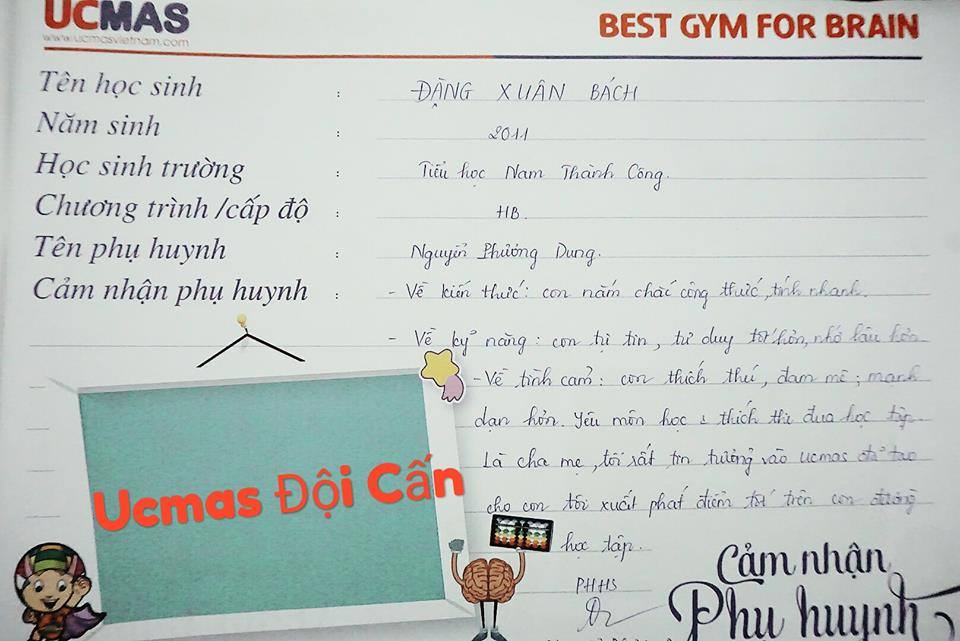 UCMAS
BEST GYM FOR BRAIN
www.ucmasvietnam.com
Tên học sinh : ĐẶNG XUÂN BÁCH
Năm sinh : 2011
Học sinh trường : Tiểu học Nam Thành Công.
Chương trình /cấp độ : HB.
Tên phụ huynh : Nguyễn Phương Dung.
Cảm nhận phụ huynh : - Về kiến thức: con nắm chắc công thức, tính nhanh.
- Về kỹ năng: con tự tin, tư duy tốt hơn, nhớ lâu hơn
- Về tình cảm: con thích thú, đam mê; mạnh
dạn hơn. Yêu môn học & thích thi đua học tập.
Là cha mẹ, tôi rất tin tưởng vào ucmas để tạo
cho con tôi xuất phát điểm tốt trên con đường
học tập.
PHHS
Ucmas Đội Cấn
Cảm nhận
Phụ huynh